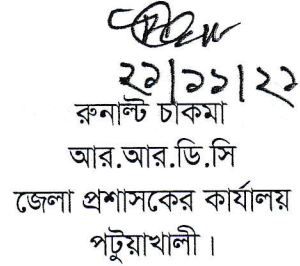 ২১/১১/২২
রুনাল্ট চাকমা
আর.আর.ডি.সি
জেলা প্রশাসকের কার্যালয়
পটুয়াখালী।